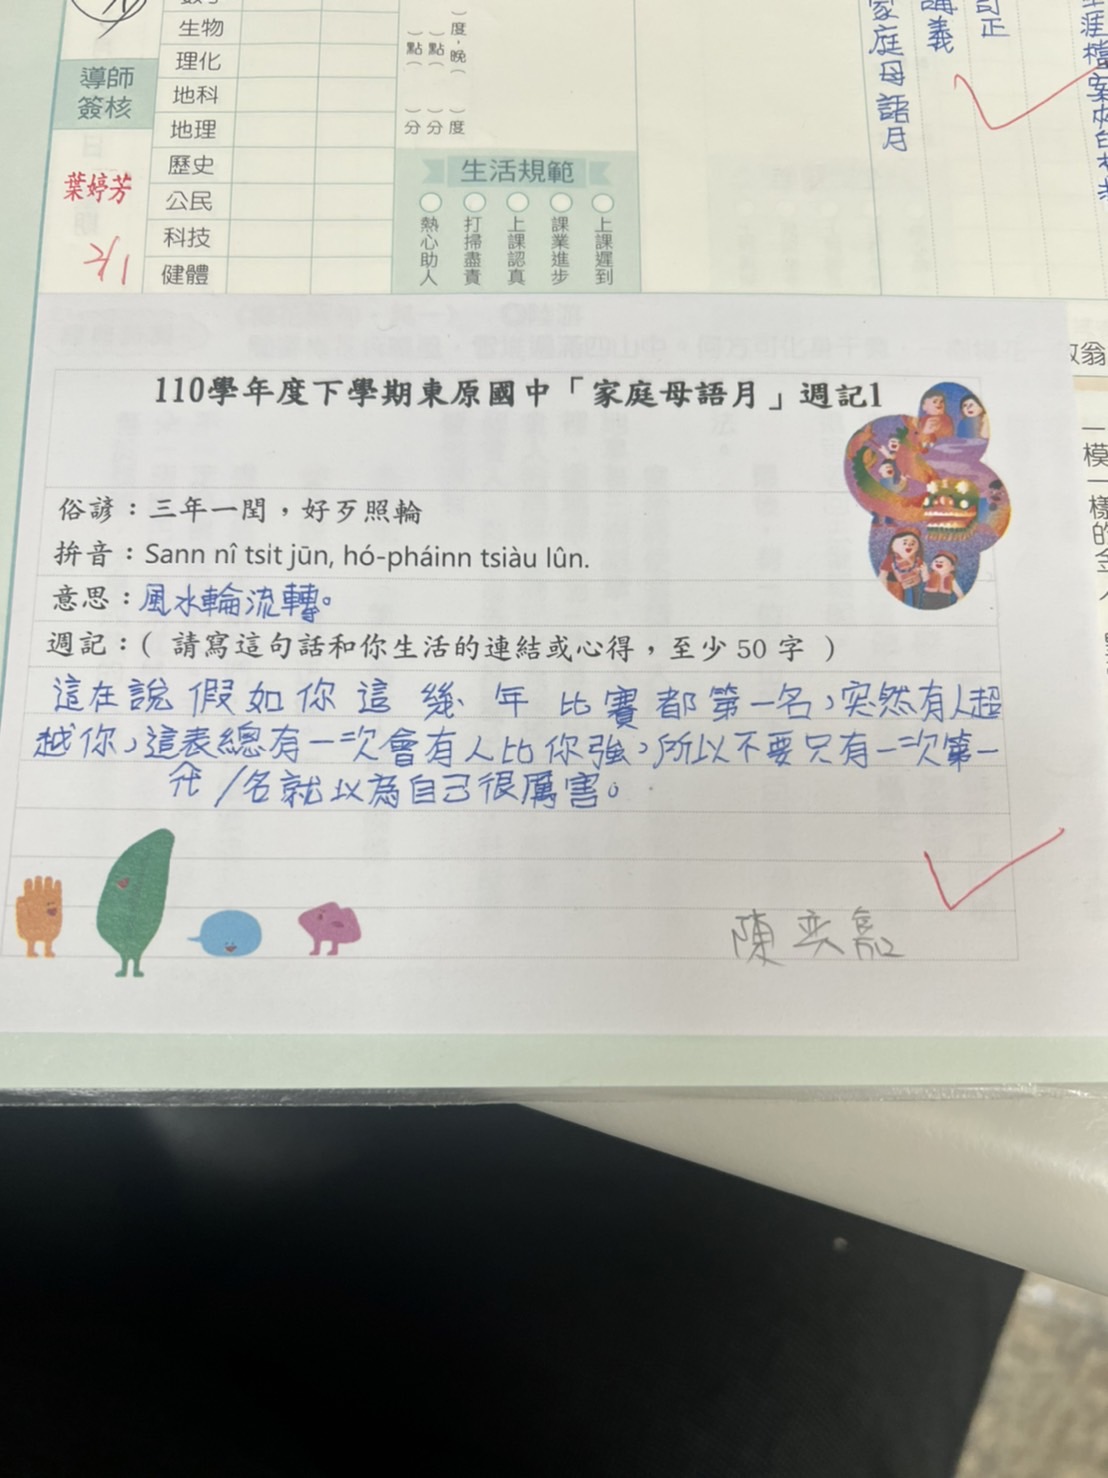 生物
理化
地科
地理
歷史
公民
科技
健體
導師
簽核
葉婷芳
2/1
度，晚
點 點
分 分 度
生活規範
熱心助人
打掃盡責
上課認真
課業進步
上課遲到
訂正
講義
家庭母語月
110學年度下學期東原國中「家庭母語月」週記1
俗諺：三年一閏，好歹照輪
拚音：Sann nî tsit jūn, hó-pháinn tsiàu lûn.
意思：風水輪流轉。
週記：( 請寫這句話和你生活的連結或心得，至少 50 字 )
這在說假如你這幾年比賽都第一名，突然有人超
越你，這表總有一次會有人比你強，所以不要只有一次第一
代/名就以為自己很厲害。
陳奕
一模一樣的金人